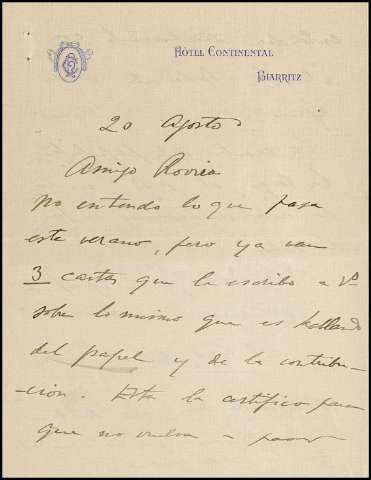 HÔTEL CONTINENTAL
BIARRITZ
20 Agosto
Amigo Rovira
No entendo lo que pasa
este verano, pero ya van
3 cartas que le escribo a Vd
sobre lo mismo que es hablando
del papel y de la contribu-
-ción. Esta la certifico para
que no vuelva a pasar